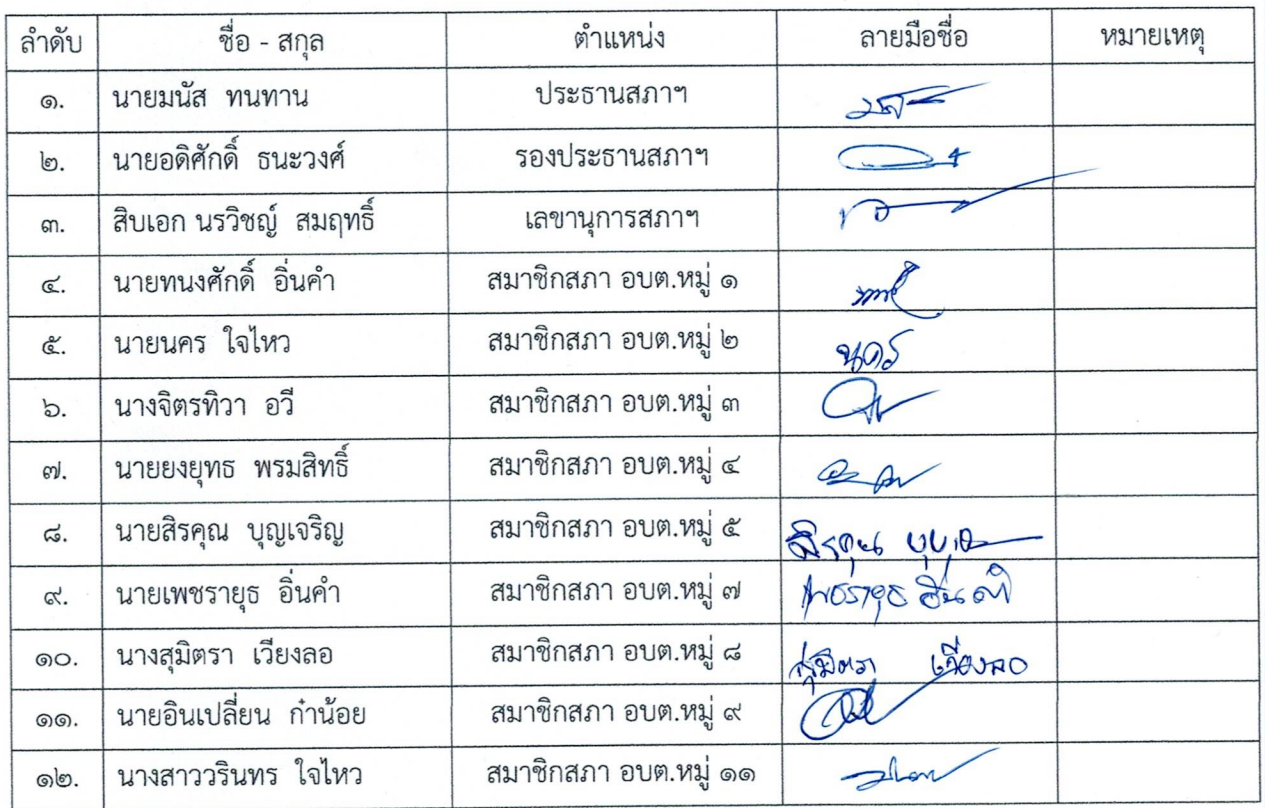 ลำดับ ชื่อ - สกุล ตำแหน่ง ลายมือชื่อ หมายเหตุ
๑. นายมนัส ทนทาน ประธานสภาฯ
๒. นายอดิศักดิ์ ธนะวงศ์ รองประธานสภาฯ
๓. สิบเอก นรวิชญ์ สมฤทธิ์ เลขานุการสภาฯ
๔. นายทนงศักดิ์ อิ่นคำ สมาชิกสภา อบต.หมู่ ๑
๕. นายนคร ใจไหว สมาชิกสภา อบต.หมู่ ๒ นคร
๖. นางจิตรทิวา อวี สมาชิกสภา อบต.หมู่ ๓
๗. นายยงยุทธ พรมสิทธิ์ สมาชิกสภา อบต.หมู่ ๔
๘. นายสิรคุณ บุญเจริญ สมาชิกสภา อบต.หมู่ ๕
๙. นายเพชรายุธ อิ่นคำ สมาชิกสภา อบต.หมู่ ๗
๑๐. นางสุมิตรา เวียงลอ สมาชิกสภา อบต.หมู่ ๘ สุมิตรา เวียงลอ
๑๑. นายอินเปลี่ยน ก๋าน้อย สมาชิกสภา อบต.หมู่ ๙
๑๒. นางสาววรินทร ใจไหว สมาชิกสภา อบต.หมู่ ๑๑